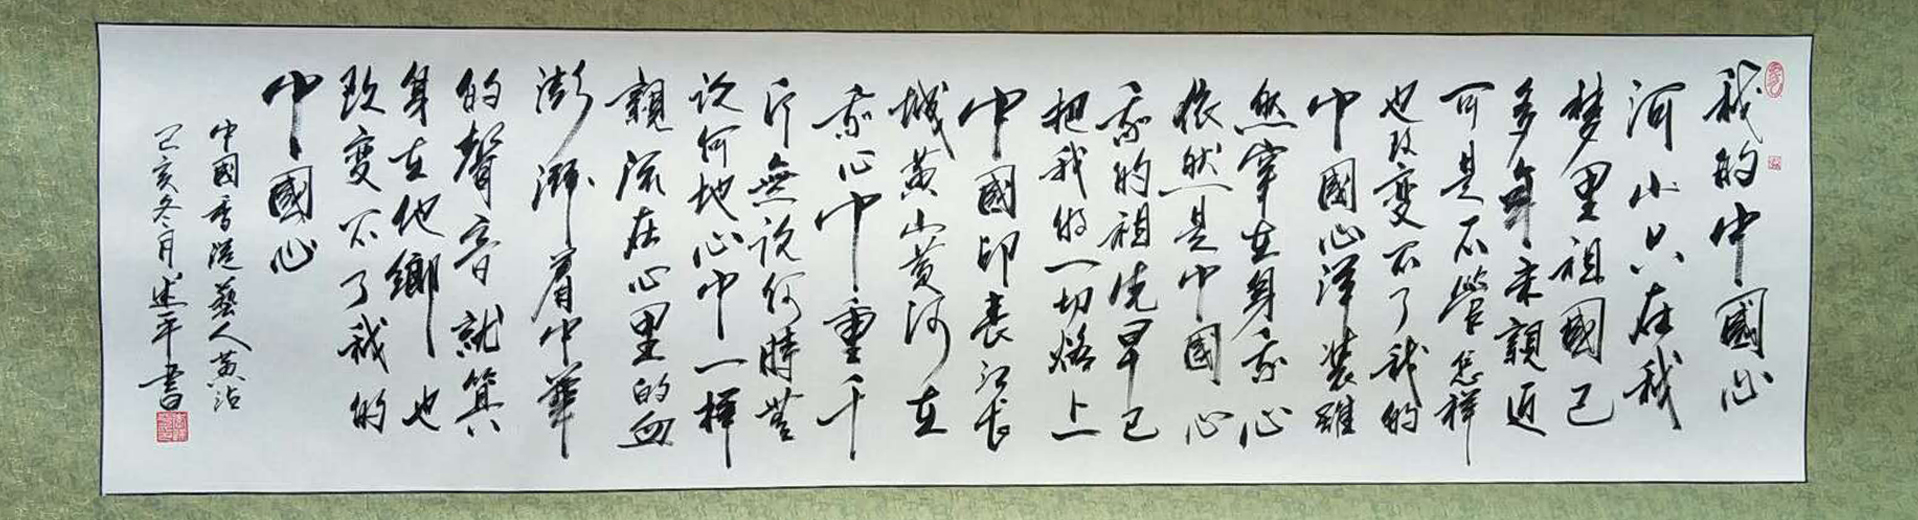 我的中國心
河山只在我
梦里祖國已
多年未親近
可是不管怎样
也改变不了我的
中國心洋装雖
然穿在身我心
依然是中國心
我的祖先早已
把我的一切烙上
中國印長江長
城黄山黄河在
我心中重千
斤無论何時無
论何地心中一樣
親流在心里的血
澎湃着中華
的聲音就算
身在他鄉也
改变不了我的
中國心
中國香港藝人黄沾
己亥冬月述平書